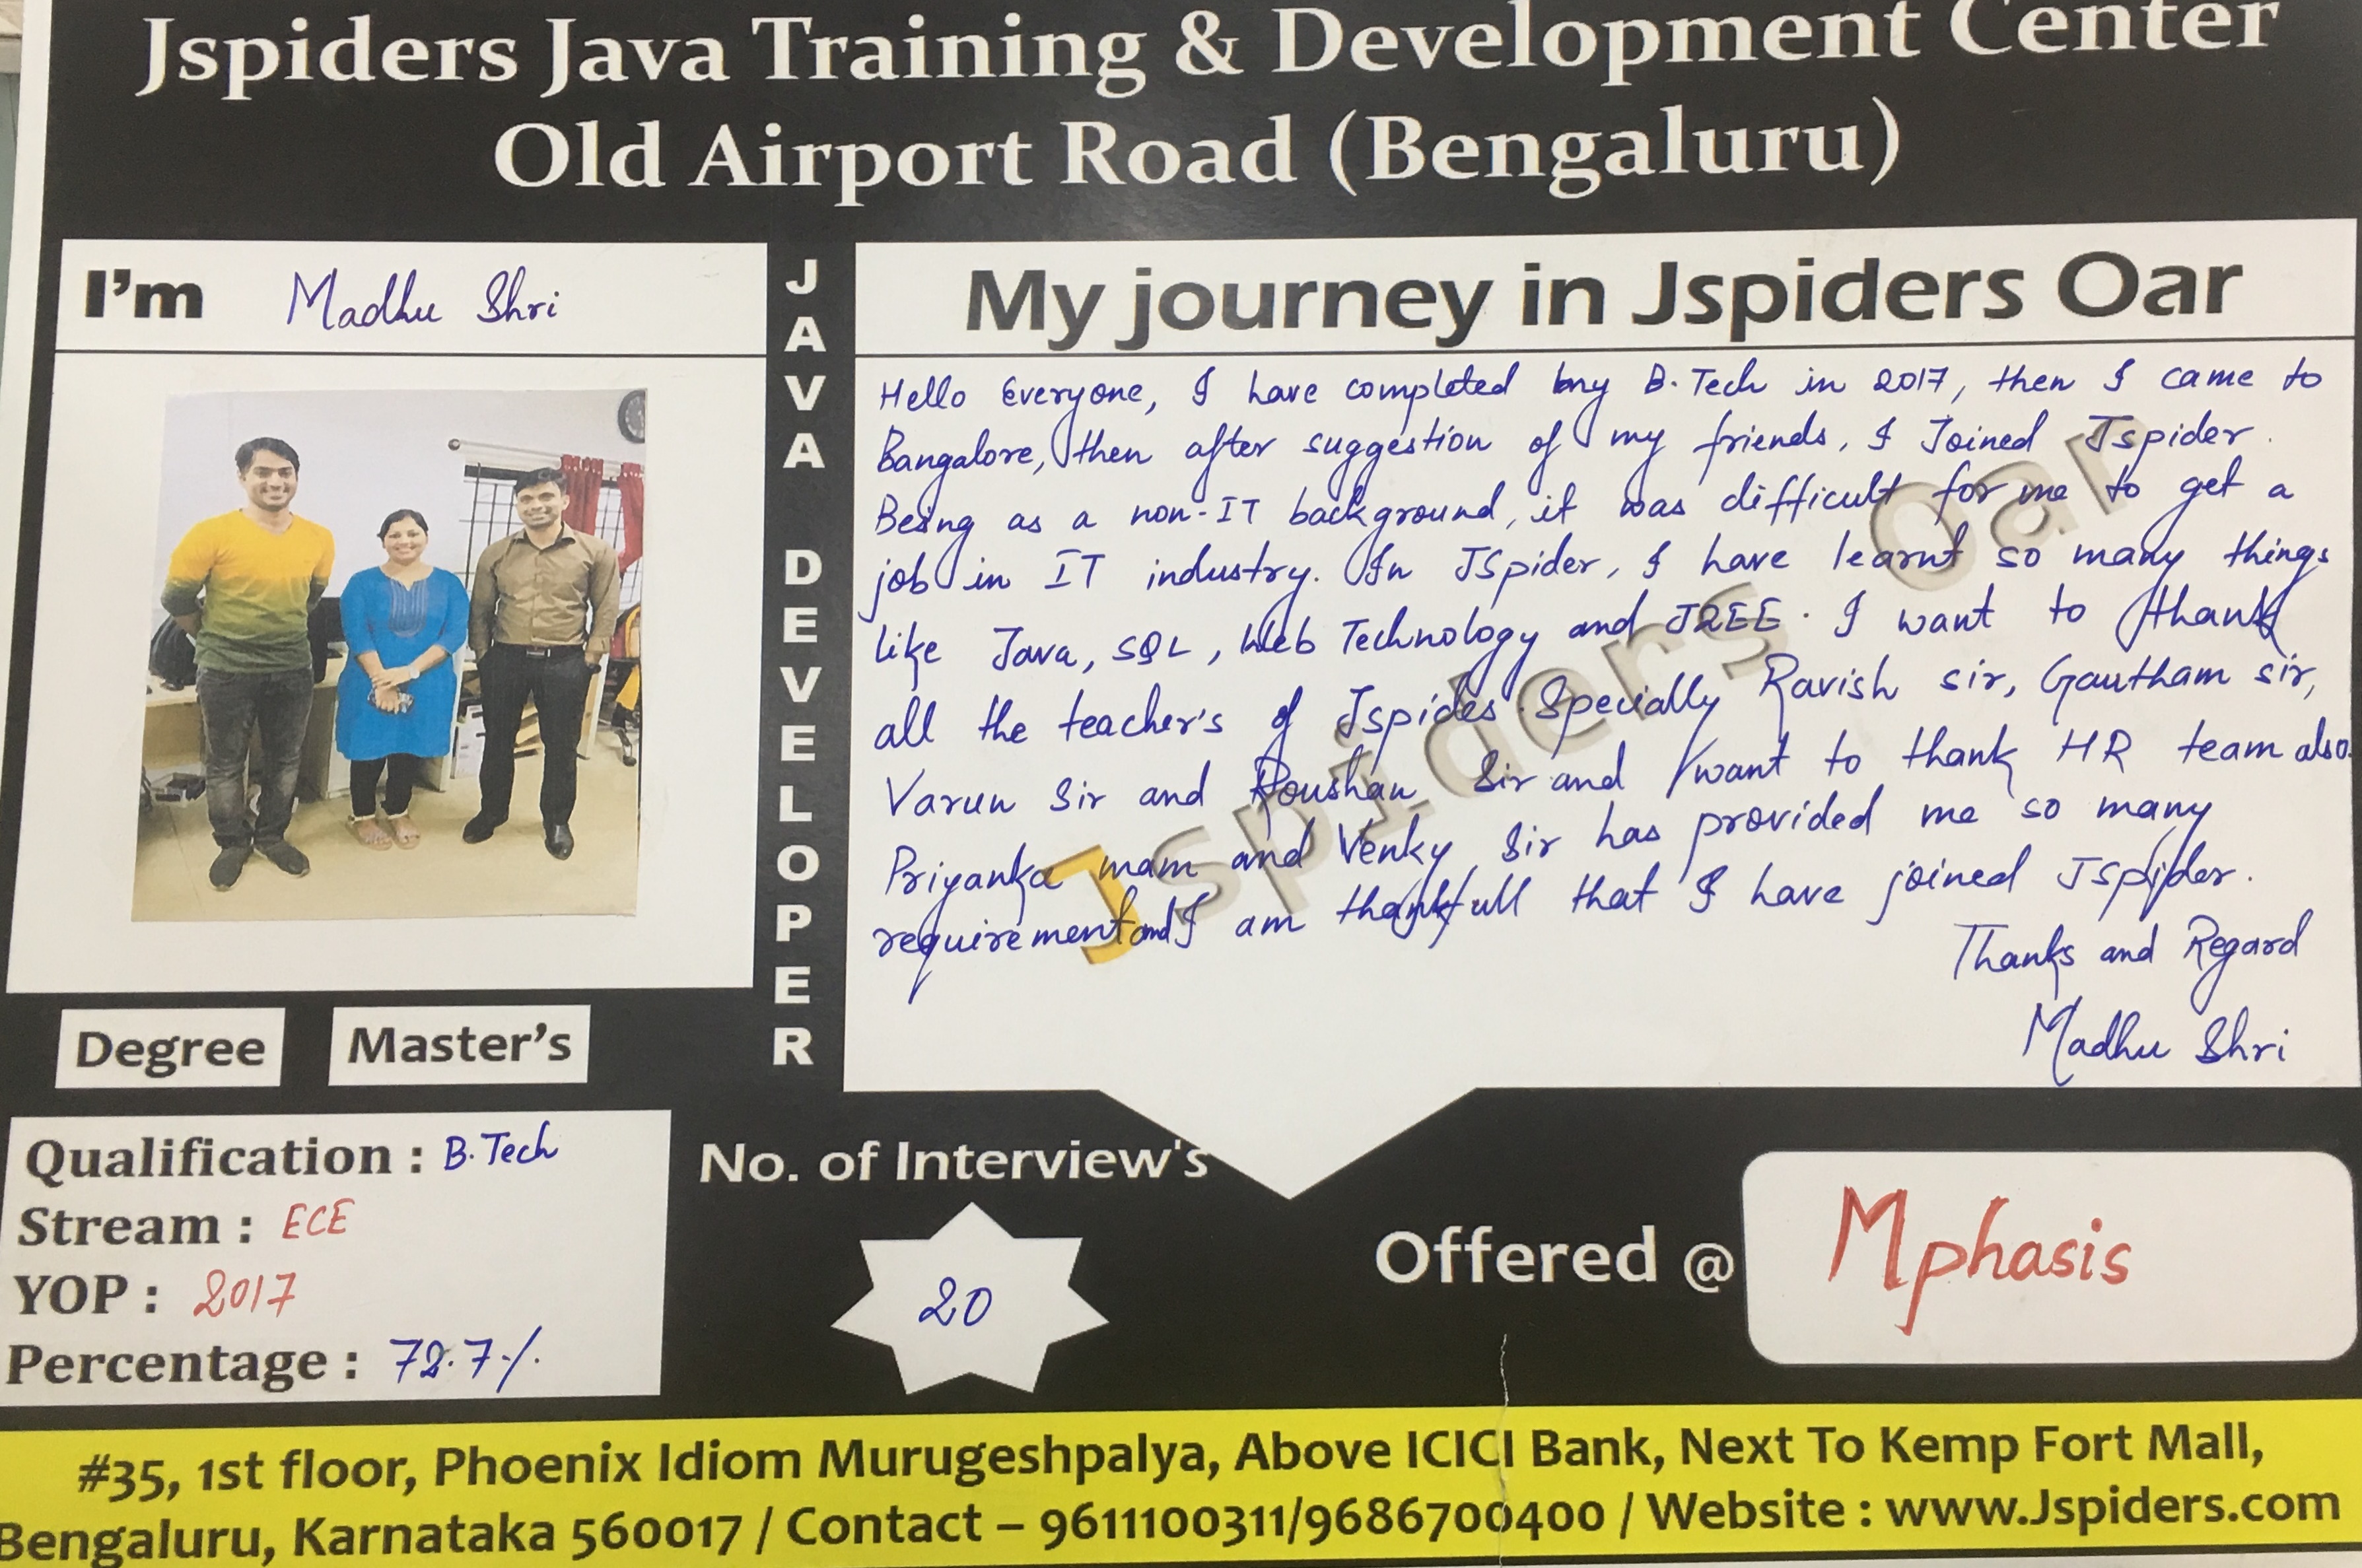 Jspiders Java Training & Development Center
Old Airport Road (Bengaluru)
I'm Madhu Shri
JAVA DEVELOPER
My journey in Jspiders Oar
Hello Everyone, I have completed my B.Tech in 2017, then I came to
Bangalore, then after suggestion of my friends, I Joined Jspider.
Being as a non-IT background, it was difficult for me to get a
job in IT industry. In JSpider, I have learnt so many things
like Java, SQL, Web Technology and J2EE. I want to thank
all the teacher's of Jspides. Specially Ravish sir, Gautham sir,
Varun Sir and Roushan Sir and I want to thank HR team also.
Priyanka mam and Venky Sir has provided me so many
requirement and I am thankfull that I have joined JSpider.
Thanks and Regard
Madhu Shri
Jspiders Oar
Degree Master's
Qualification : B.Tech
Stream : ECE
YOP : 2017
Percentage : 72.7%
No. of Interview's
20
Offered @ Mphasis
#35, 1st floor, Phoenix Idiom Murugeshpalya, Above ICICI Bank, Next To Kemp Fort Mall,
Bengaluru, Karnataka 560017 / Contact – 9611100311/9686700400 / Website : www.Jspiders.com